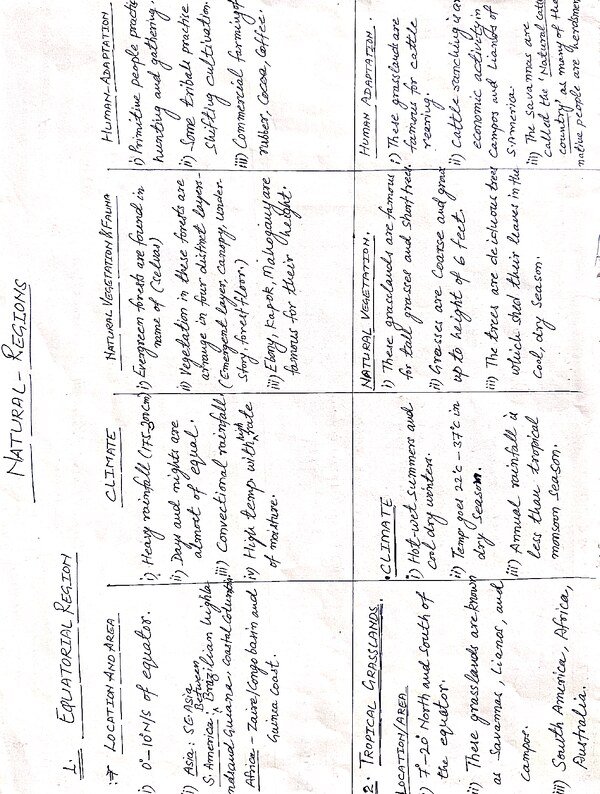 NATURAL - REGIONS
1. EQUATORIAL REGION
LOCATION AND AREA
i) 0°-10°N/S of equator.
ii) Asia: SE Asia
S. America: Between Brazilian highla-
nds and Guiana, coastal Columbia
Africa - Zaire/Congo basin and
Guinea coast.
CLIMATE
i) Heavy rainfall (175-201cm)
ii) Days and nights are
almost of equal.
iii) Convectional rainfall
iv) High temp with high rate
of moisture.
NATURAL VEGETATION & FAUNA
i) Evergreen forests are found in
name of (Selvas)
ii) Vegetation in these forests are
arrange in four distinct layers-
(Emergent layer, canopy, under-
story, forest floor.)
iii) Ebony, Kapok, Mahogany are
famous for their height.
HUMAN-ADAPTATION
i) Primitive people practi
hunting and gathering.
ii) Some tribals practise
shifting cultivation.
iii) Commercial farming of
rubber, Cocoa, Coffee.
2. TROPICAL GRASSLANDS.
LOCATION/AREA
i) 7°-20° North and South of
the equator.
ii) These grasslands are known
as Savannas, Lianos, and
Campos.
iii) South America, Africa,
Australia.
CLIMATE
i) Hot-wet summers and
Col dry winters.
ii) Temp goes 22°c - 37°c in
dry season.
iii) Annual rainfall is
less than tropical
monsoon season.
NATURAL VEGETATION.
i) These grasslands are famous
for tall grasses and short trees.
ii) Grasses are Coarse and grow
up to height of 6 feet.
iii) The trees are deciduous trees
which shed their leaves in the
Cool, dry season.
HUMAN ADAPTATION.
i) These grasslands are
famous for cattle
reering.
ii) Cattle ranching is an
economic activity in
Campos and Lianos of
S.America.
iii) The savannas are
called the 'Natural Cattle
country' as many of the
native people are herdsmen